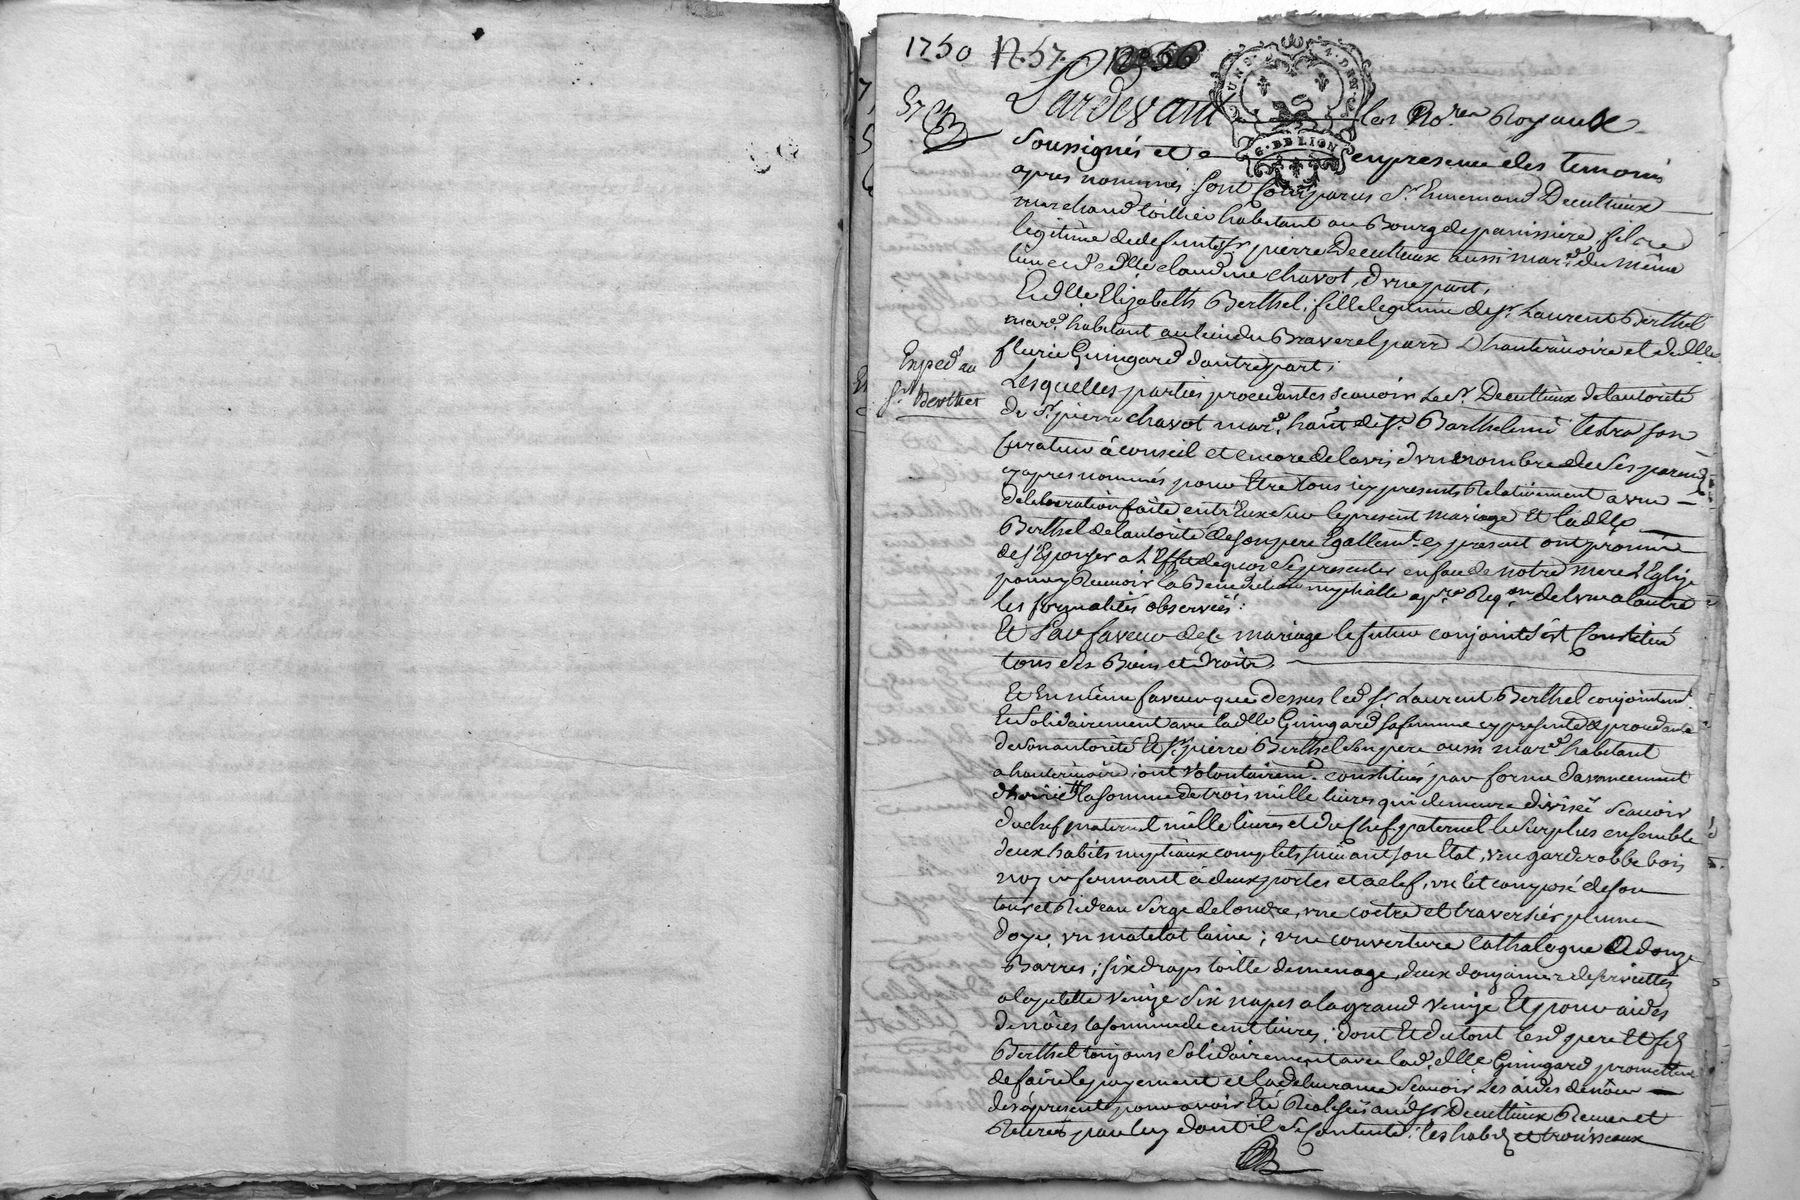 1750 1757
57
Pardevant les No.res Royaux
Soussignés et en presence des temoins
apres nommés sont comparus Sr. Ennemond Decultieux
marchand toillier habitant au Bourg de panissiere, fils
legitime de defunts Sr. pierre Decultieux aussi mard. du même
lieu et de dlle claudine chavot, d'vne part,
Et dlle Elizabeth Berthel, fille legitime de Sr. Laurent Berthel
mard. habitant au lieu du Braverel parr. D'hauterivoire et de dlle
flurie Guingard d'autre part;
Exped. au
Sr. Berthet
Lesquelles parties procedantes scavoir Le Sr. Decultieux de lautorité
de Sr. pierre chavot mard. hant. de St. Barthelemi Lestra son
curateur à conseil et encore de lavis d'vn nombre de ses parens
cy apres nommés pour Etre tous icy presents Relativement a vne
deliberation faite entr'Eux sur le present mariage Et la dlle
Berthel de lautorité de son pere Egallemt. cy present ont promis
de s'Epouser a L'Effet de quoi se presenter en face de notre mere L'Eglise
pour y Recevoir la Benediction nuptialle apr. Reqon. de l'vne a lautre
les formalités observées:
Et En faveur de ce mariage le futur conjoint s'est Constitué
tous ses Biens et droits.
Et En même faveur que dessus led. Sr. Laurent Berthel conjointemt.
Et Solidairement avec la dlle Guingard sa femme cy presente & procedante
de son autorité Et Sr. pierre Berthel son pere aussi mard. habitant
a hauterivoire, ont volontairemt. constitués par forme d'avancement
d'hoirie la somme de trois mille livres qui demeure divisée scavoir
du chef maternel mille livres et du Chef paternel le surplus ensemble
deux habits nuptiaux complets suivant son Etat, vn garderobbe bois
noyer fermant a deux portes et a clef, vn lit composé de son
tour et Rideau serge de londre, vne coetre et traversier plume
d'oye, vn matelat laine; vne couverture Cathalogne a douze
Barres; six draps toille de menage, deux douzaines de serviettes
a la petite venize six napes a la grand venize Et pour aides
de nôces la somme de cent livres. dont Et du tout lesd. pere Et fils
Berthel toujours Solidairement avec lad. dlle Guingard promettent
de faire le payement et la delivrance scavoir les aides de nôces
des a present pour avoir Eté Realisés aud. Sr. Decultieux Reçus et
Retirés par luy dont il se contente: les habits et trousseaux